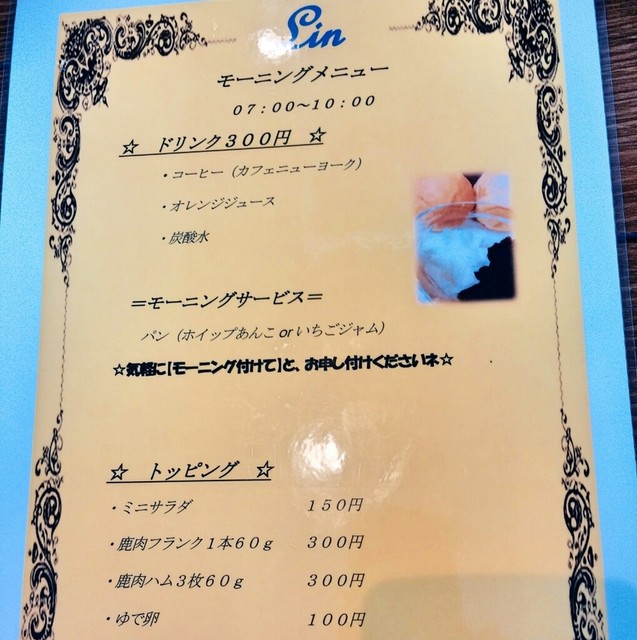 Lin
モーニングメニュー
07:00～10:00
☆ ドリンク300円 ☆
・コーヒー（カフェニューヨーク）
・オレンジジュース
・炭酸水
＝モーニングサービス＝
パン（ホイップあんこ or いちごジャム）
☆気軽に【モーニング付けて】と、お申し付けくださいネ☆
☆ トッピング ☆
・ミニサラダ 150円
・鹿肉フランク1本60g 300円
・鹿肉ハム3枚60g 300円
・ゆで卵 100円